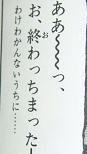 ああ～～っ、
お、終わっちまったー
わけわかんないうちに……